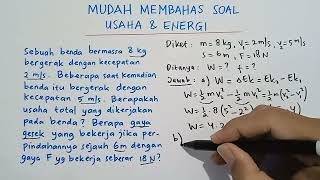 MUDAH MEMBAHAS SOAL
USAHA & ENERGI
Sebuah benda bermassa 8 kg
bergerak dengan kecepatan
2 m/s. Beberapa saat kemudian
benda itu bergerak dengan
kecepatan 5 m/s. Berapakah
usaha total yang dikerjakan
pada benda? Berapa gaya
gesek yang bekerja jika per-
pindahannya sejauh 6m dengan
gaya F yg bekerja sebesar 18N?
Diket: m = 8 kg, V₁= 2 m/s, V₂= 5 m/s
s = 6m, F = 18N
Ditanya: W = ? f = ?
Jawab: a) W = ΔEk = Ek₂ - Ek₁
W = ½ m V₂² - ½ m V₁² = ½ m (V₂² - V₁²)
W = ½ . 8 (5² - 2²)
W = 4.
b)